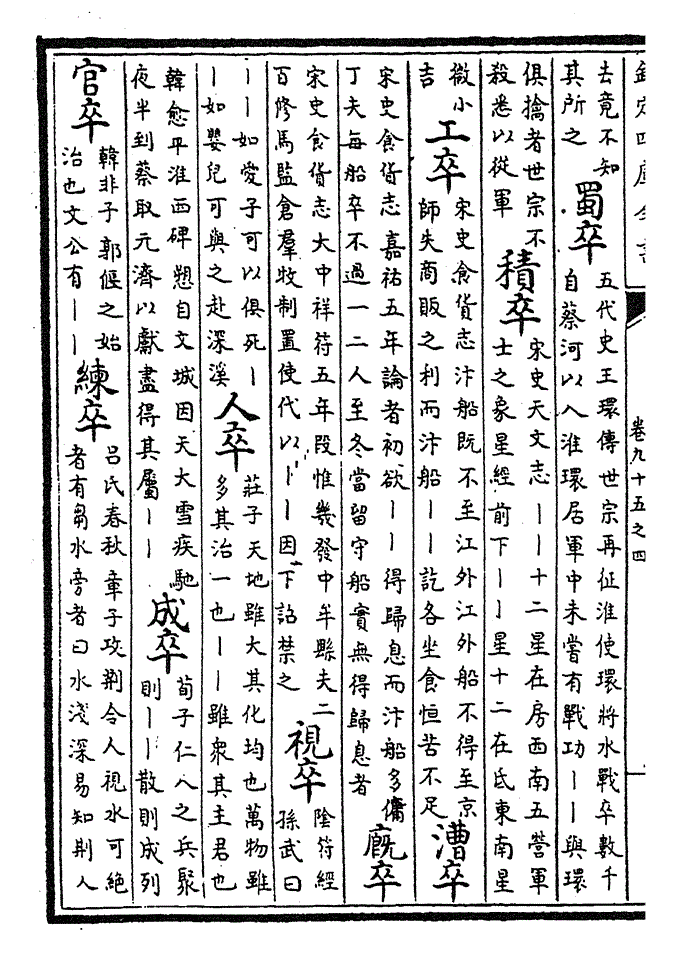 欽定四庫全書
卷九十五之四
去竟不知
其所之
蜀卒
五代史王環傳世宗再征淮使環將水戰卒數千
自蔡河以入淮環居軍中未嘗有戰功丨丨與環
俱擒者世宗不
殺悉以從軍
積卒
宋史天文志丨丨十二星在房西南五營軍
士之象星經前下丨丨星十二在氐東南星
微小
吉
工卒
宋史食貨志汴船既不至江外江外船不得至京
師失商販之利而汴船丨丨訖各坐食恒苦不足
漕卒
宋史食貨志嘉祐五年論者初欲丨丨得歸息而汴船多傭
丁夫每船卒不過一二人至冬當留守船實無得歸息者
廐卒
宋史食貨志大中祥符五年段惟幾發中牟縣夫二
百修馬監倉羣牧制置使代以丨丨因下詔禁之
視卒
陰符經
孫武曰
丨丨如愛子可以俱死丨
丨如嬰兒可與之赴深溪
人卒
莊子天地雖大其化均也萬物雖
多其治一也丨丨雖衆其主君也
韓愈平淮西碑愬自文城因天大雪疾馳
夜半到蔡取元濟以獻盡得其屬丨丨
成卒
荀子仁人之兵聚
則丨丨散則成列
官卒
韓非子郭偃之始
治也文公有丨丨
練卒
吕氏春秋章子攻荆令人視水可絶
者有芻水旁者曰水淺深易知荆人